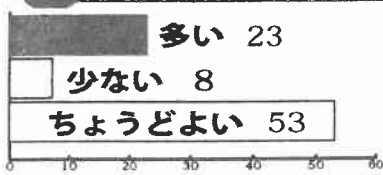 多い 23
少ない 8
ちょうどよい 53
0 10 20 30 40 50 60